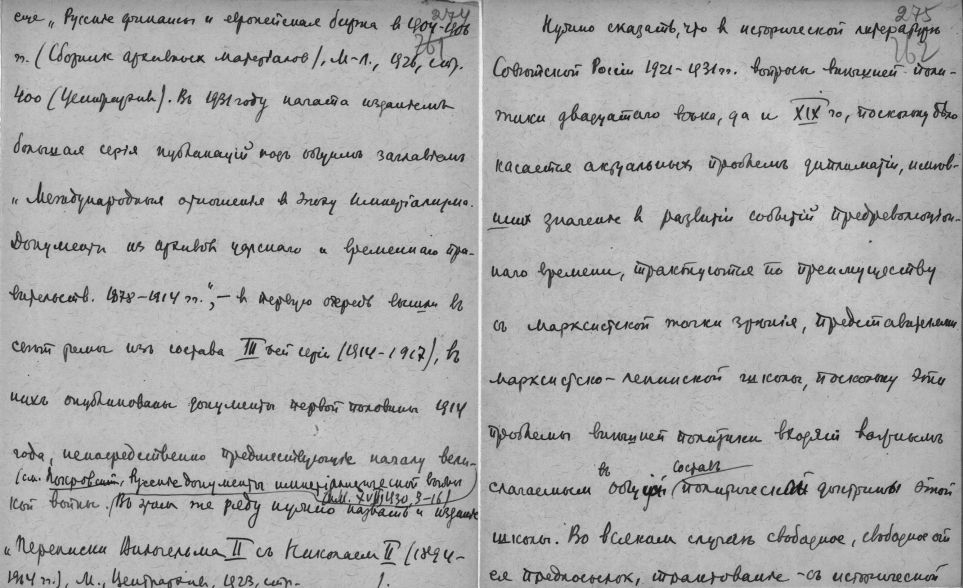 274
еще „Русские финансы и европейская биржа в 1904-1906
761
гг. (Сборник архивных материалов), М-Л., 1926, стр.
400 (Центрархив). Въ 1931 году начата изданiемъ
большая серiя публикацiй подъ общимъ заглавiемъ
„Международныя отношенiя в эпоху имперiализма.
Документы из архивов царскаго и временнаго пра-
вительств. 1878-1914 гг.“, – в первую очередь вышли въ
светъ томы изъ состава III ьей серiи (1914-1917), въ
нихъ опубликованы документы первой половины 1914
года, непосредственно предшествующiе началу вели-
(см. Покровский, Русские документы империалистической войны
1930, 3-16)
кой войны. Въ этом же ряду нужно назвать и изданiе
„Переписки Вильгельма II съ Николаем II (1894-
1914 гг.), М., Центрархив, 1923, стр.
275
Нужно сказать, что в исторической литературе
762
Советской Россiи 1921-1931 гг. вопросы внешней поли-
тики двадцатаго века, да и XIX го, поскольку дело
касается актуальных проблемъ дипломатiи, имев-
ших значенiе в развитiи событiй предреволюцiон-
наго времени, трактуются по преимуществу
съ марксистской точки зренiя, представителями
марксистско-ленинской школы, поскольку эти
проблемы внешней политики входят важнымъ
въ составъ
слагаемым общей политической доктрины этой
школы. Во всякомъ случае свободное, свободное от
ея предпосылок, трактованiе съ исторической